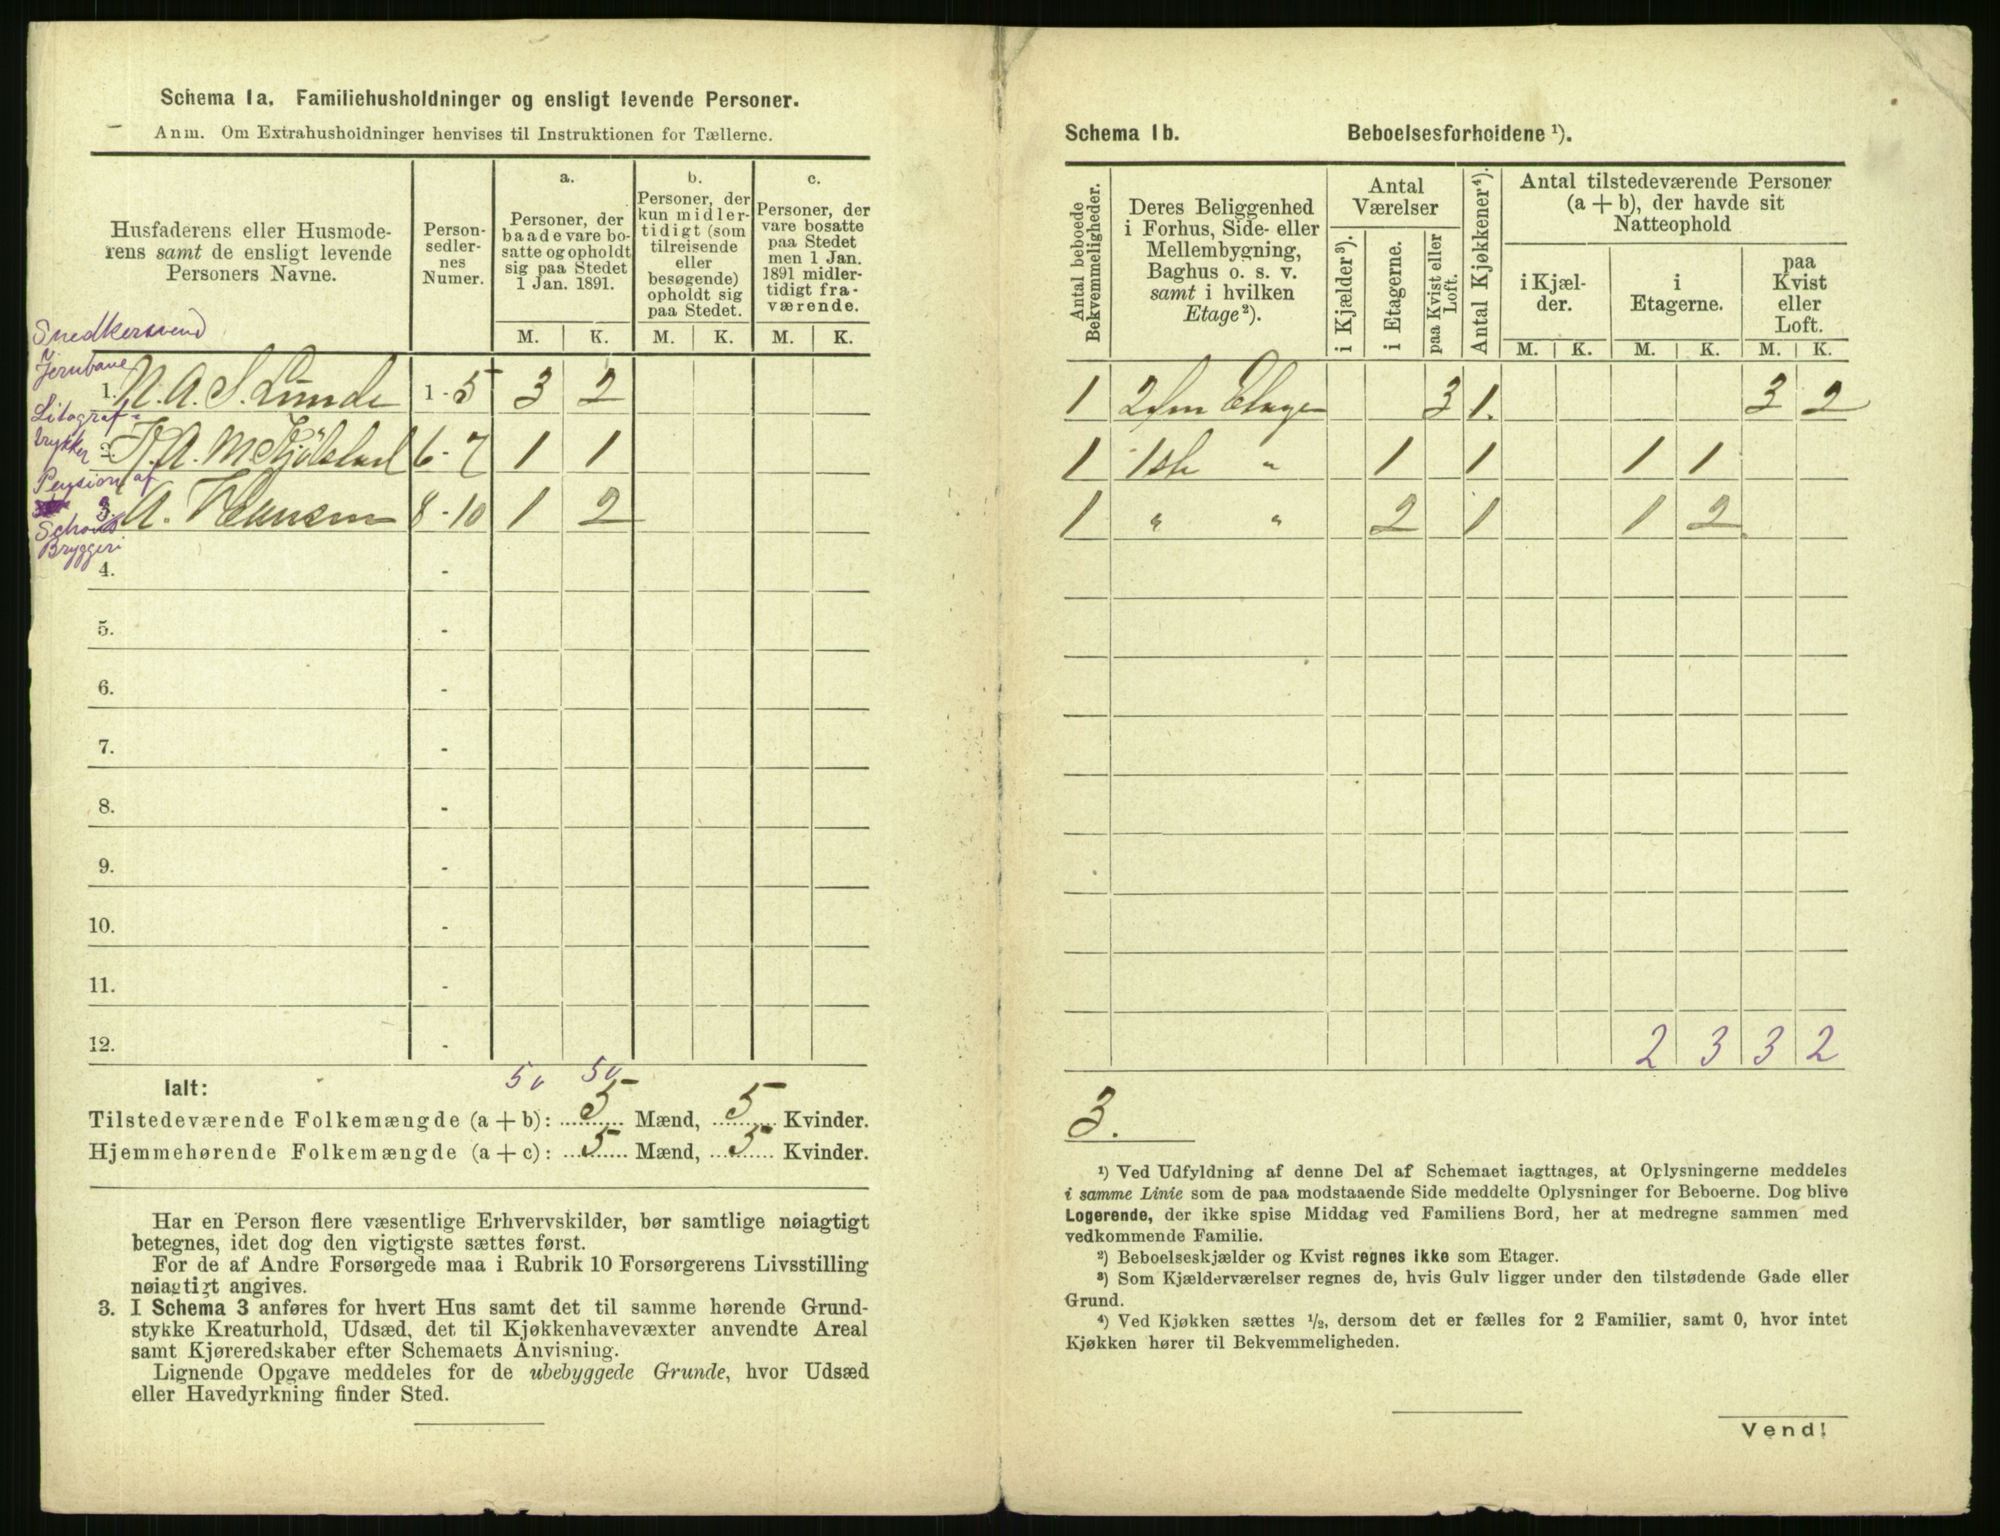 Schema 1a. Familiehusholdninger og ensligt levende Personer.
Anm. Om Extrahusholdninger henvises til Instruktionen for Tællerne.
Husfaderens eller Husmoderens samt de ensligt levende Personers Navne.
Personsedlernes Numer.
a. Personer, der baade vare bosatte og opholdt sig paa Stedet 1 Jan. 1891.
b. Personer, der kun midlertidigt (som tilreisende eller besøgende) opholdt sig paa Stedet.
c. Personer, der vare bosatte paa Stedet men 1 Jan. 1891 midlertidigt fraværende.
M. K. M. K. M. K.
Snedkersvend
Jernbane
1. N. A. S. Lunde 1-5 3 2
Litograf-
trykker
2. A. M. 6-7 1 1
Pension af
3. A. Hansen 8-10 1 2
Schous
Bryggeri
4. -
5. -
6. -
7. -
8. -
9. -
10. -
11. -
12. -
Ialt:
Tilstedeværende Folkemængde (a + b): 5 Mænd, 5 Kvinder.
Hjemmehørende Folkemængde (a + c): 5 Mænd, 5 Kvinder.
Har en Person flere væsentlige Erhvervskilder, bør samtlige nøiagtigt
betegnes, idet dog den vigtigste sættes først.
For de af Andre Forsørgede maa i Rubrik 10 Forsørgerens Livsstilling
nøiagtigt angives.
3. I Schema 3 anføres for hvert Hus samt det til samme hørende Grund-
stykke Kreaturhold, Udsæd, det til Kjøkkenhavevæxter anvendte Areal
samt Kjøreredskaber efter Schemaets Anvisning.
Lignende Opgave meddeles for de ubebyggede Grunde, hvor Udsæd
eller Havedyrkning finder Sted.
Schema 1b. Beboelsesforholdene ¹).
Antal beboede Bekvemmeligheder.
Deres Beliggenhed i Forhus, Side- eller Mellembygning, Baghus o. s. v. samt i hvilken Etage²).
Antal Værelser
i Kjælder³).
i Etagerne.
paa Kvist eller Loft.
Antal Kjøkkener⁴).
Antal tilstedeværende Personer (a + b), der havde sit Natteophold
i Kjælder.
i Etagerne.
paa Kvist eller Loft.
M. K. M. K. M. K.
1 2den Etage 3 1. 3 2
1 1ste " 1 1 1 1
1 " " 2 1 1 2
2 3 3 2
3.
¹) Ved Udfyldning af denne Del af Schemaet iagttages, at Oplysningerne meddeles
i samme Linie som de paa modstaaende Side meddelte Oplysninger for Beboerne. Dog blive
Logerende, der ikke spise Middag ved Familiens Bord, her at medregne sammen med
vedkommende Familie.
²) Beboelseskjælder og Kvist regnes ikke som Etager.
³) Som Kjælderværelser regnes de, hvis Gulv ligger under den tilstødende Gade eller
Grund.
⁴) Ved Kjøkken sættes ½, dersom det er fælles for 2 Familier, samt 0, hvor intet
Kjøkken hører til Bekvemmeligheden.
Vend!